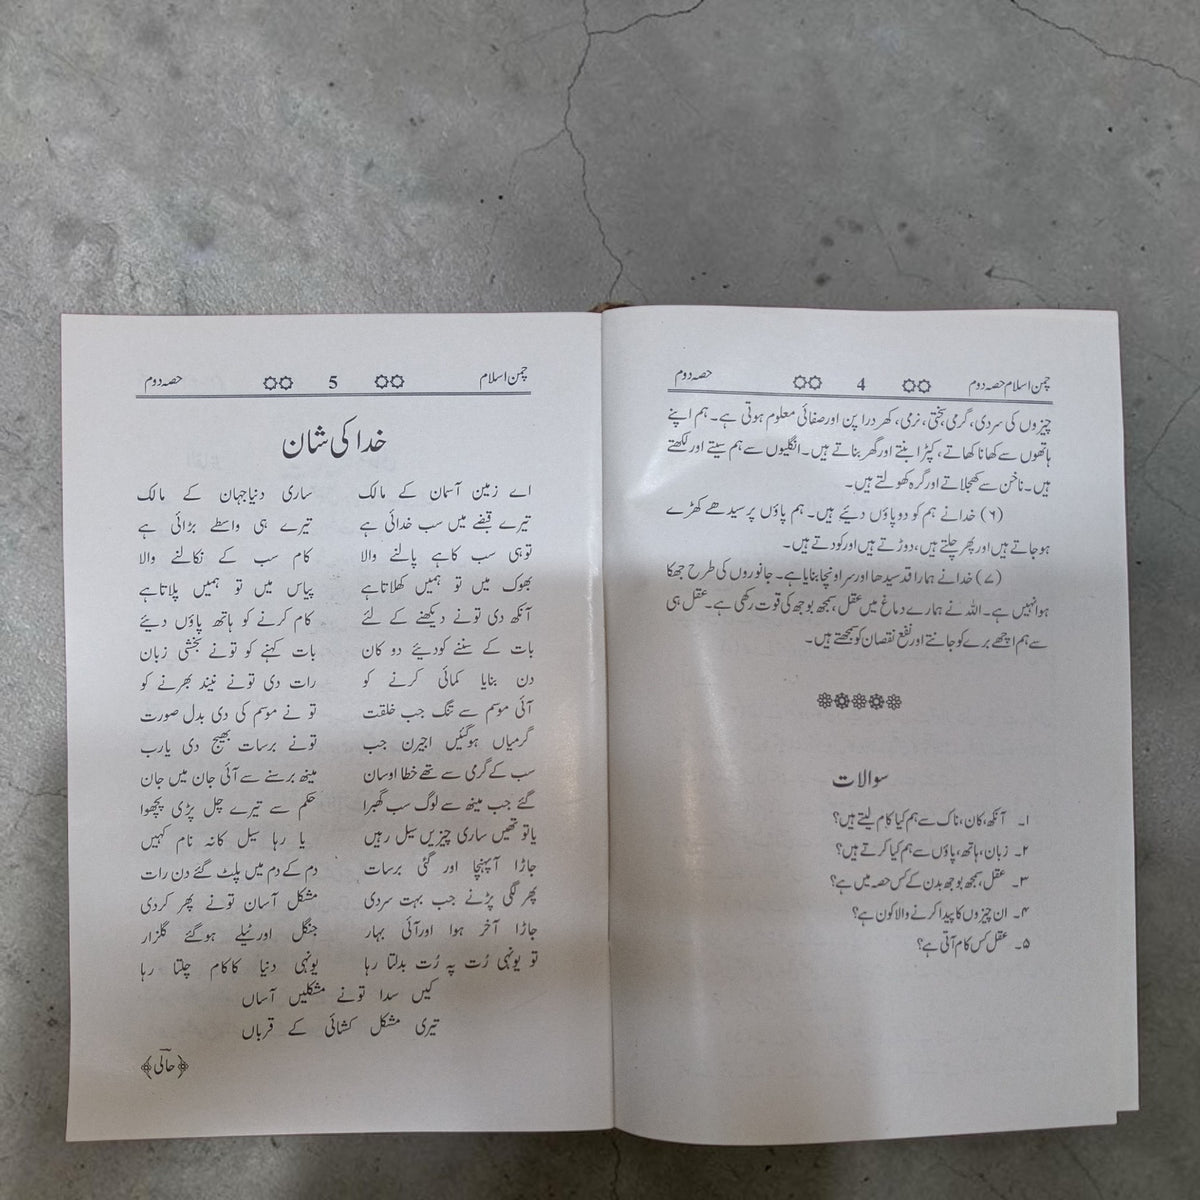 چمن اسلام حصہ دوم 4 حصہ دوم
چیزوں کی سردی، گرمی، سختی، نرمی، کھردرا پن اور صفائی معلوم ہوتی ہے۔ ہم اپنے
ہاتھوں سے کھانا کھاتے، کپڑا بنتے اور گھر بناتے ہیں۔ انگلیوں سے ہم سیتے اور لکھتے
ہیں۔ ناخن سے کھجلاتے اور گرہ کھولتے ہیں۔
(۶) خدا نے ہم کو دو پاؤں دیئے ہیں۔ ہم پاؤں پر سیدھے کھڑے
ہو جاتے ہیں اور پھر چلتے ہیں، دوڑتے ہیں اور کودتے ہیں۔
(۷) خدا نے ہمارا قد سیدھا اور سر اونچا بنایا ہے۔ جانوروں کی طرح جھکا
ہوا نہیں ہے۔ اللہ نے ہمارے دماغ میں عقل، سمجھ بوجھ کی قوت رکھی ہے۔ عقل ہی
سے ہم اچھے برے کو جانتے اور نفع نقصان کو سمجھتے ہیں۔
سوالات
۱۔ آنکھ، کان، ناک سے ہم کیا کام لیتے ہیں؟
۲۔ زبان، ہاتھ، پاؤں سے ہم کیا کرتے ہیں؟
۳۔ عقل، سمجھ بوجھ بدن کے کس حصہ میں ہے؟
۴۔ ان چیزوں کا پیدا کرنے والا کون ہے؟
۵۔ عقل کس کام آتی ہے؟
چمن اسلام 5 حصہ دوم
خدا کی شان
اے زمین آسمان کے مالک ساری دنیا جہان کے مالک
تیرے قبضے میں سب خدائی ہے تیرے ہی واسطے بڑائی ہے
تو ہی سب کا ہے پالنے والا کام سب کے نکالنے والا
بھوک میں تو ہمیں کھلاتا ہے پیاس میں تو ہمیں پلاتا ہے
آنکھ دی تو نے دیکھنے کے لئے کام کرنے کو ہاتھ پاؤں دیئے
بات کے سننے کو دیئے دو کان بات کہنے کو تو نے بخشی زبان
دن بنایا کمائی کرنے کو رات دی تو نے نیند بھرنے کو
آئی موسم سے تنگ جب خلقت تو نے موسم کی دی بدل صورت
گرمیاں ہو گئیں اجیرن جب تو نے برسات بھیج دی یارب
سب کے گرمی سے تھے خطا اوسان مینھ برسنے سے آئی جان میں جان
گئے جب مینھ سے لوگ سب گھبرا حکم سے تیرے چل پڑی پچھوا
یا تو تھیں ساری چیزیں سیل رہیں یا رہا سیل کا نہ نام کہیں
جاڑا آپہنچا اور گئی برسات دم کے دم میں پلٹ گئے دن رات
پھر لگی پڑنے جب بہت سردی مشکل آسان تو نے پھر کردی
جاڑا آخر ہوا اور آئی بہار جنگل اور ٹیلے ہو گئے گلزار
تو یونہی رُت پہ رُت بدلتا رہا یونہی دنیا کا کام چلتا رہا
کیں سدا تو نے مشکلیں آساں
تیری مشکل کشائی کے قرباں
﴿حالیؔ﴾